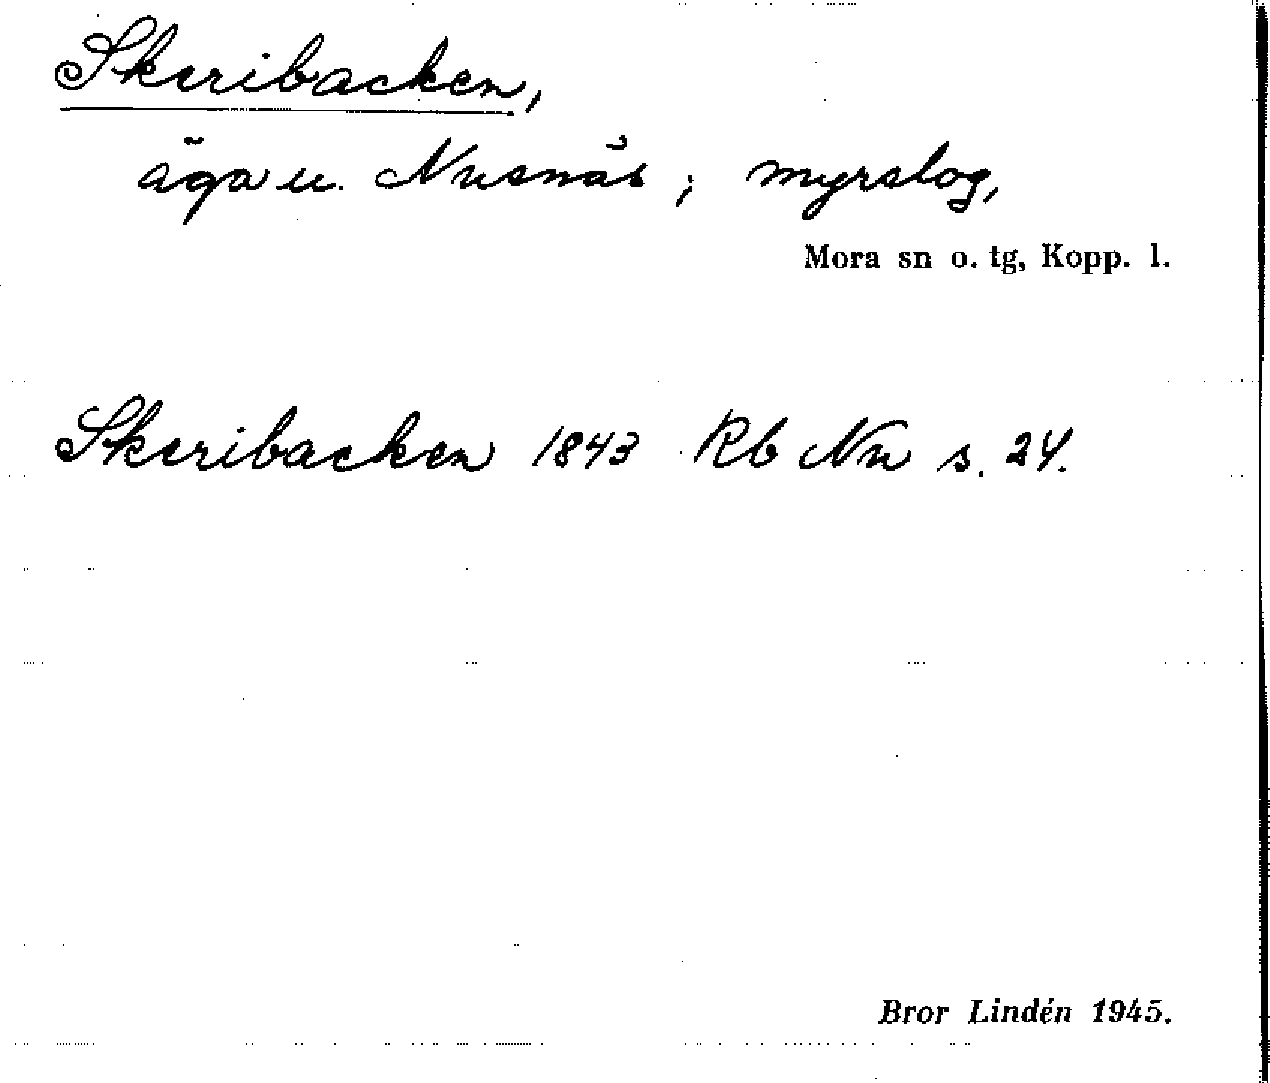 Skeribacken,
äga u. Nusnäs; myrslog,
Mora sn o. tg, Kopp. l.
Skeribacken 1843 Rb Nn s. 24.
Bror Lindén 1945.